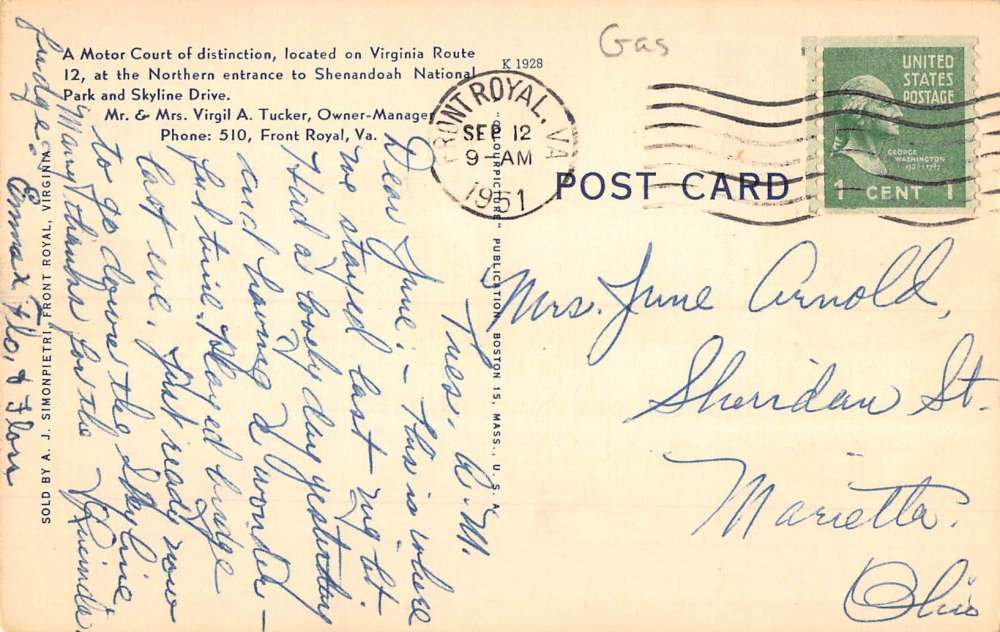 A Motor Court of distinction, located on Virginia Route
12, at the Northern entrance to Shenandoah National
Park and Skyline Drive.
Mr. & Mrs. Virgil A. Tucker, Owner-Manager
Phone: 510, Front Royal, Va.
K 1928
Gas
FRONT ROYAL, VA
SEP 12
9-AM
1951
UNITED
STATES
POSTAGE
GEORGE
WASHINGTON
1 CENT 1
POST CARD
"COLOURPICTURE" PUBLICATION, BOSTON 15, MASS., U. S. A.
SOLD BY A. J. SIMONPIETRI, FRONT ROYAL, VIRGINIA
Tues. A.M.
Dear June: - This is where
we stayed last night
Had a lovely day yesterday
and having a wonder-
ful time. Played bridge
last eve. Just ready now
to go down the Skyline.
Many thanks for the
fudge.
Emmax, Flo, & Flon
Mrs. June Arnold,
Sheridan St.
Marietta.
Ohio